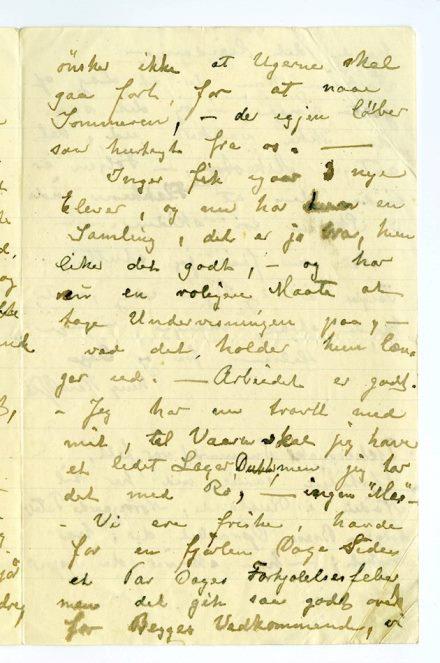 ønsker ikke at Ugerne skal
gaa fort, for at naae
Sommeren, — der igjen løber
saa hurtigt fra os. —
Inger fik igaar 3 nye
Elever, og nu har hun en
Samling, det er jo bra, hun
liker det godt, — og har
nu en roligere Maate at
tage Undervisningen paa, —
ved det holder hun læn-
ger ud. — Arbeidet er godt.
- Jeg har nu travlt med
mit, til Vaaren skal jeg have
et lidet Lager Dukker, men jeg tar
det med Ro, — ingen "Mas" -
- Vi ere friske, havde
for en fjorten Dage siden
et Par Dages Forkjølelsesfeber
men det gik saa godt over
for Begges Vedkommende, vi